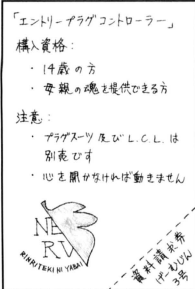 「エントリープラグコントローラー」
購入資格:
・14歳の方
・母親の魂を提供できる方
注意:
・プラグスーツ及びL.C.L.は
別売です
・心を開かなければ動きません
NE
RV
RINRITEKI NI YABAI
資料請求券
げーむじん
3号